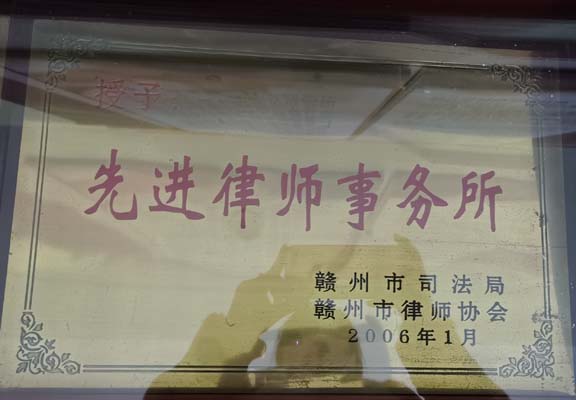 授予
先进律师事务所
赣州市司法局
赣州市律师协会
2006年1月